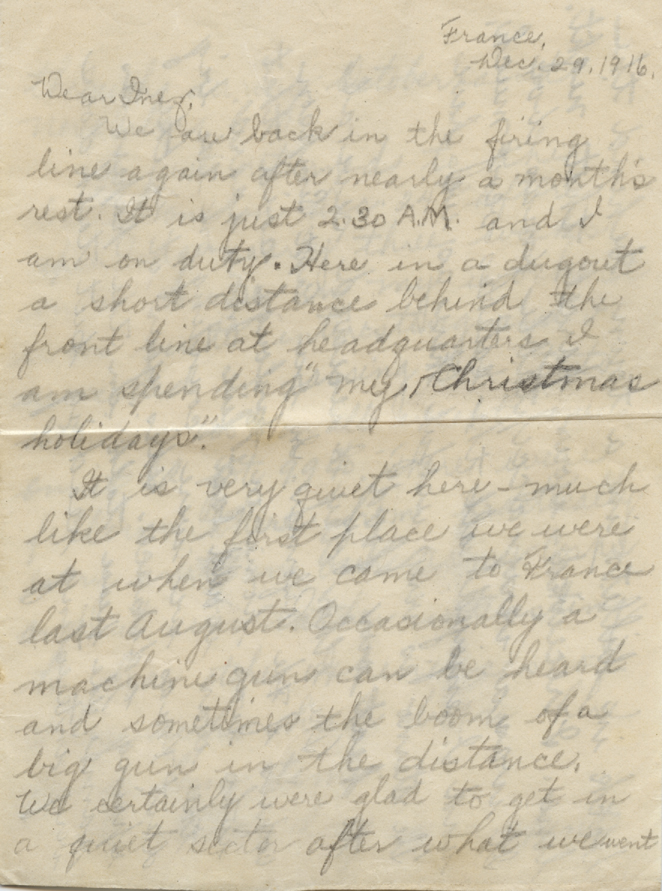 France,
Dec. 29, 1916.
Dear Inez,
We are back in the firing
line again after nearly a month's
rest. It is just 2.30 A.M. and I
am on duty. Here in a dugout
a short distance behind the
front line at headquarters I
am spending "my Christmas
holidays".
It is very quiet here - much
like the first place we were
at when we came to France
last August. Occasionally a
machine gun can be heard
and sometimes the boom of a
big gun in the distance.
We certainly were glad to get in
a quiet sector after what we went